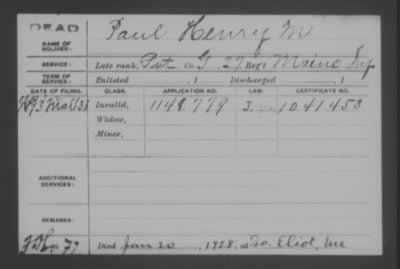 DEAD
Paul Henry M
NAME OF SOLDIER:
SERVICE: Late rank, Pvt Co. G, 27 Reg't Maine Inf
TERM OF SERVICE: Enlisted , 1 Discharged , 1
DATE OF FILING. CLASS. APPLICATION NO. LAW. CERTIFICATE NO.
Mar 31 Invalid, 1148.779 1041453
Widow,
Minor,
ADDITIONAL SERVICES:
REMARKS:
Died Jan 20, 1928, at So. Eliot, Me